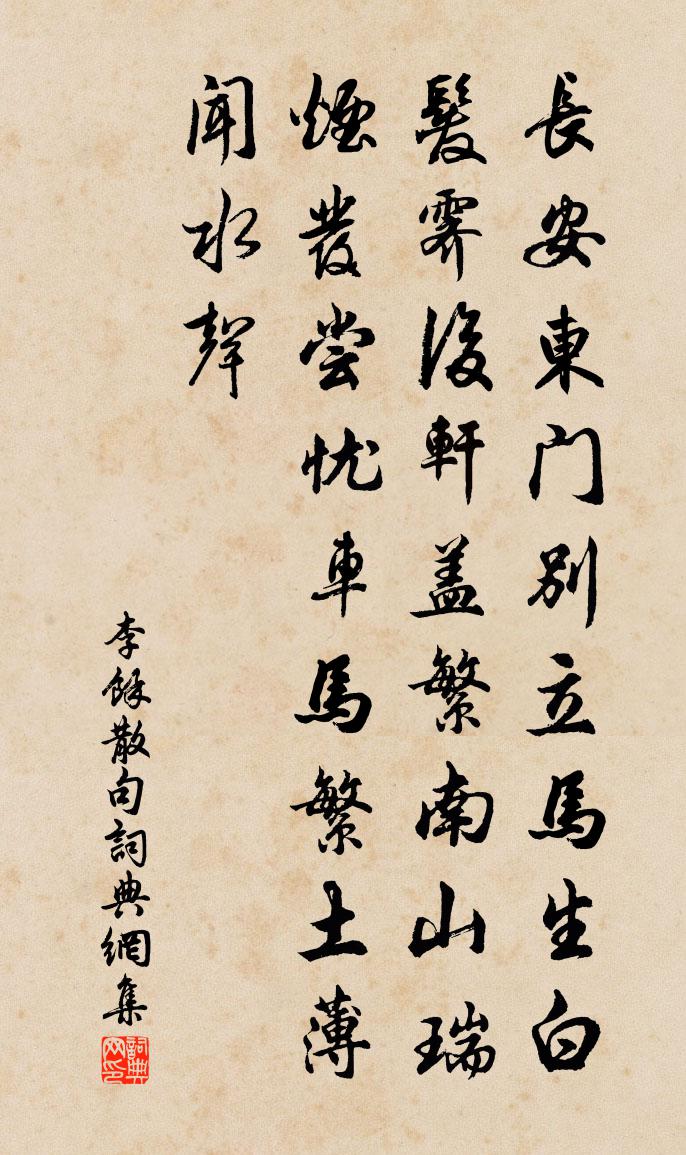 長安東門別立馬生白
髮霽後軒盖繁南山瑞
煙發嘗忧車馬繁土薄
聞水聲
李餘散句詞典網集
詞典网印